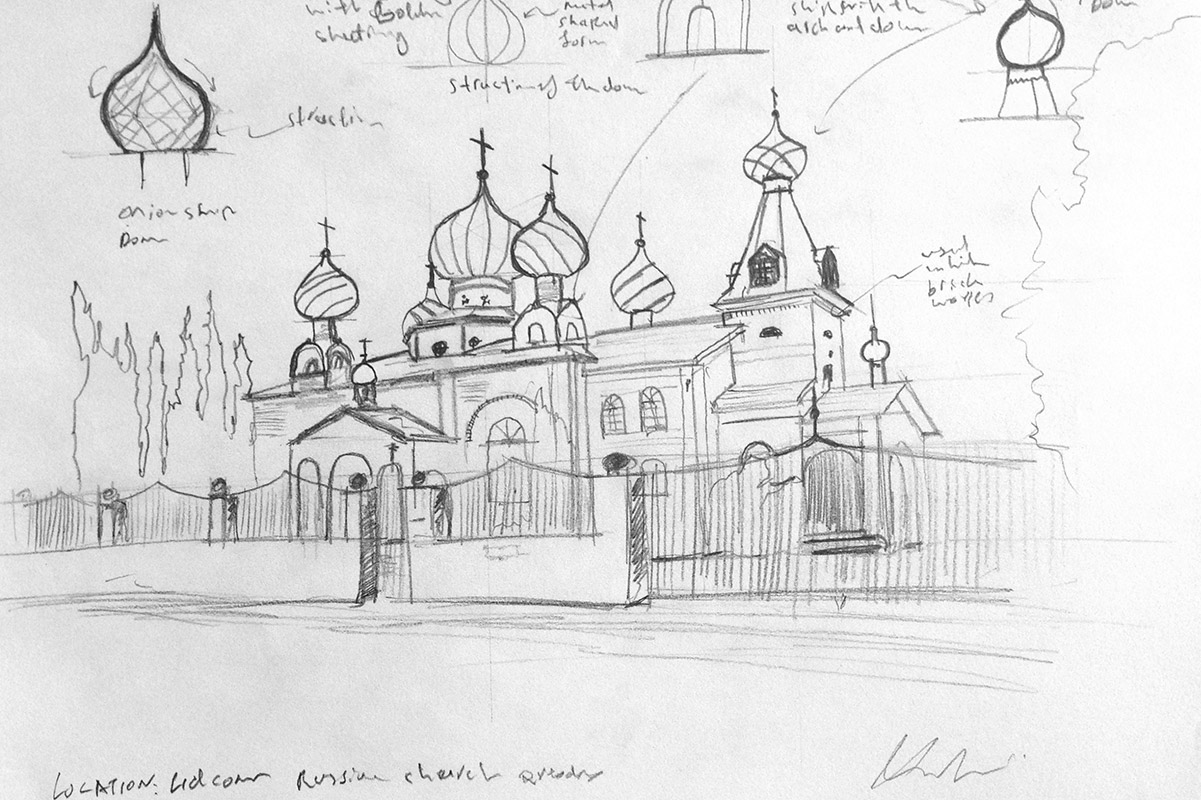 with Golden
sheeting
metal
shaped
form
structure of the dome
ship with the
arch and dome
Dome
structure
onion shap
Dome
used
white
brick
LOCATION: Lidcome Russian church